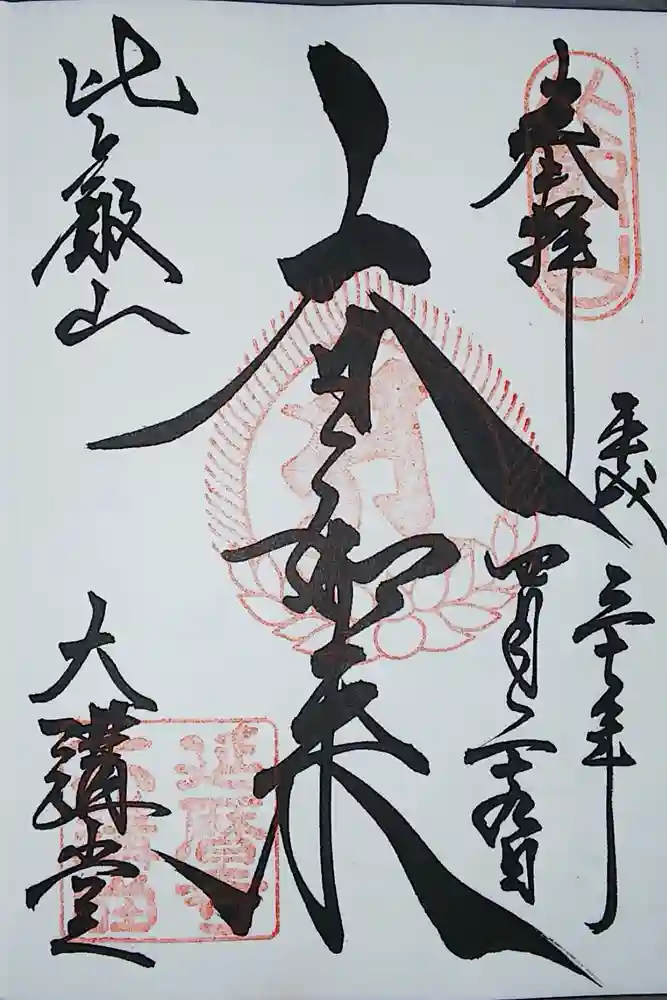 奉拝
平成
三十年
四月二十九日
大日如来
比叡山
大講堂